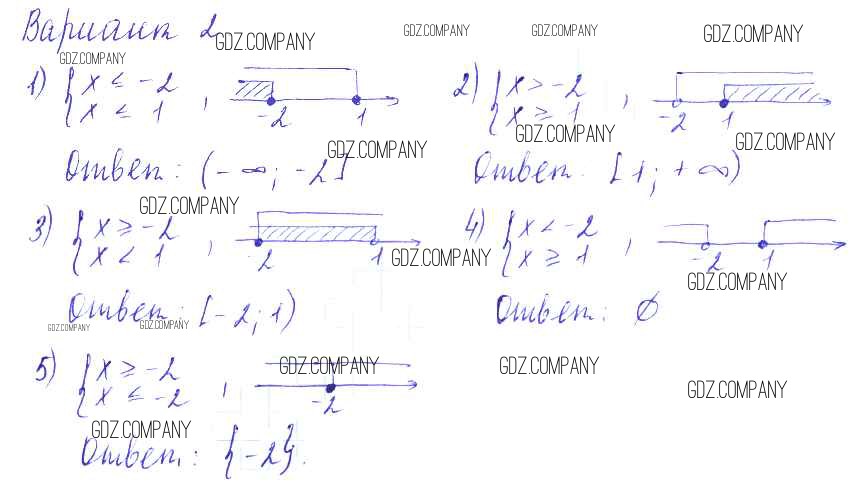 Вариант 2
GDZ.COMPANY
GDZ.COMPANY GDZ.COMPANY GDZ.COMPANY
GDZ.COMPANY
1) { x ≤ -2
x ≤ 1 , -2 1
2) { x > -2
x ≥ 1 , -2 1
GDZ.COMPANY GDZ.COMPANY GDZ.COMPANY
Ответ: (-∞; -2]
Ответ: [1; +∞)
GDZ.COMPANY
3) { x ≥ -2
x < 1 , -2 1
4) { x < -2
x ≥ 1 , -2 1
GDZ.COMPANY GDZ.COMPANY
Ответ: [-2; 1)
Ответ: ∅
GDZ.COMPANY GDZ.COMPANY
5) { x ≥ -2
x ≤ -2 , -2
GDZ.COMPANY GDZ.COMPANY GDZ.COMPANY
GDZ.COMPANY
Ответ: {-2}.